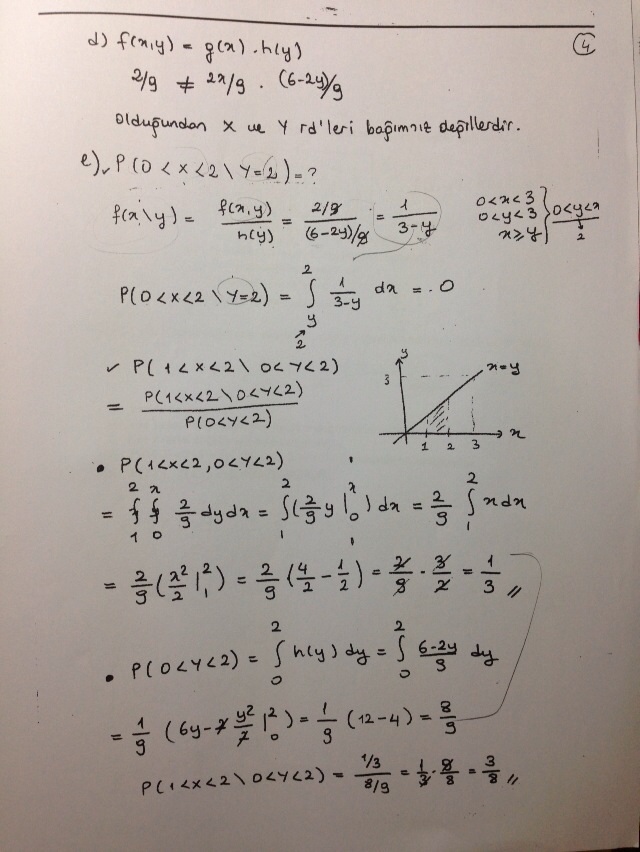 4
d) f(x,y) = g(x) . h(y)
2/9 ≠ 2x/9 . (6-2y)/9
Olduğundan X ve Y rd'leri bağımsız değillerdir.
e) ✓ P(0<x<2 \ Y=2) = ?
f(x\y) = f(x,y)/h(y) = (2/9)/((6-2y)/9) = 1/(3-y)
0<x<3
0<y<3
x≥y } 0<y<x
2
P(0<x<2 \ Y=2) = ∫_y^2 1/(3-y) dx = 0
2
✓ P(1<x<2 \ 0<Y<2)
= P(1<x<2 \ 0<Y<2) / P(0<Y<2)
y
3
x=y
1 2 3 x
• P(1<x<2, 0<Y<2)
= ∫_1^2 ∫_0^x 2/9 dy dx = ∫_1^2 (2/9 y |_0^x) dx = 2/9 ∫_1^2 x dx
= 2/9 (x²/2 |_1^2) = 2/9 (4/2 - 1/2) = 2/9 . 3/2 = 1/3 //
• P(0<Y<2) = ∫_0^2 h(y) dy = ∫_0^2 (6-2y)/9 dy
= 1/9 (6y - 2 y²/2 |_0^2) = 1/9 (12-4) = 8/9
P(1<x<2 \ 0<Y<2) = (1/3)/(8/9) = 1/3 . 9/8 = 3/8 //